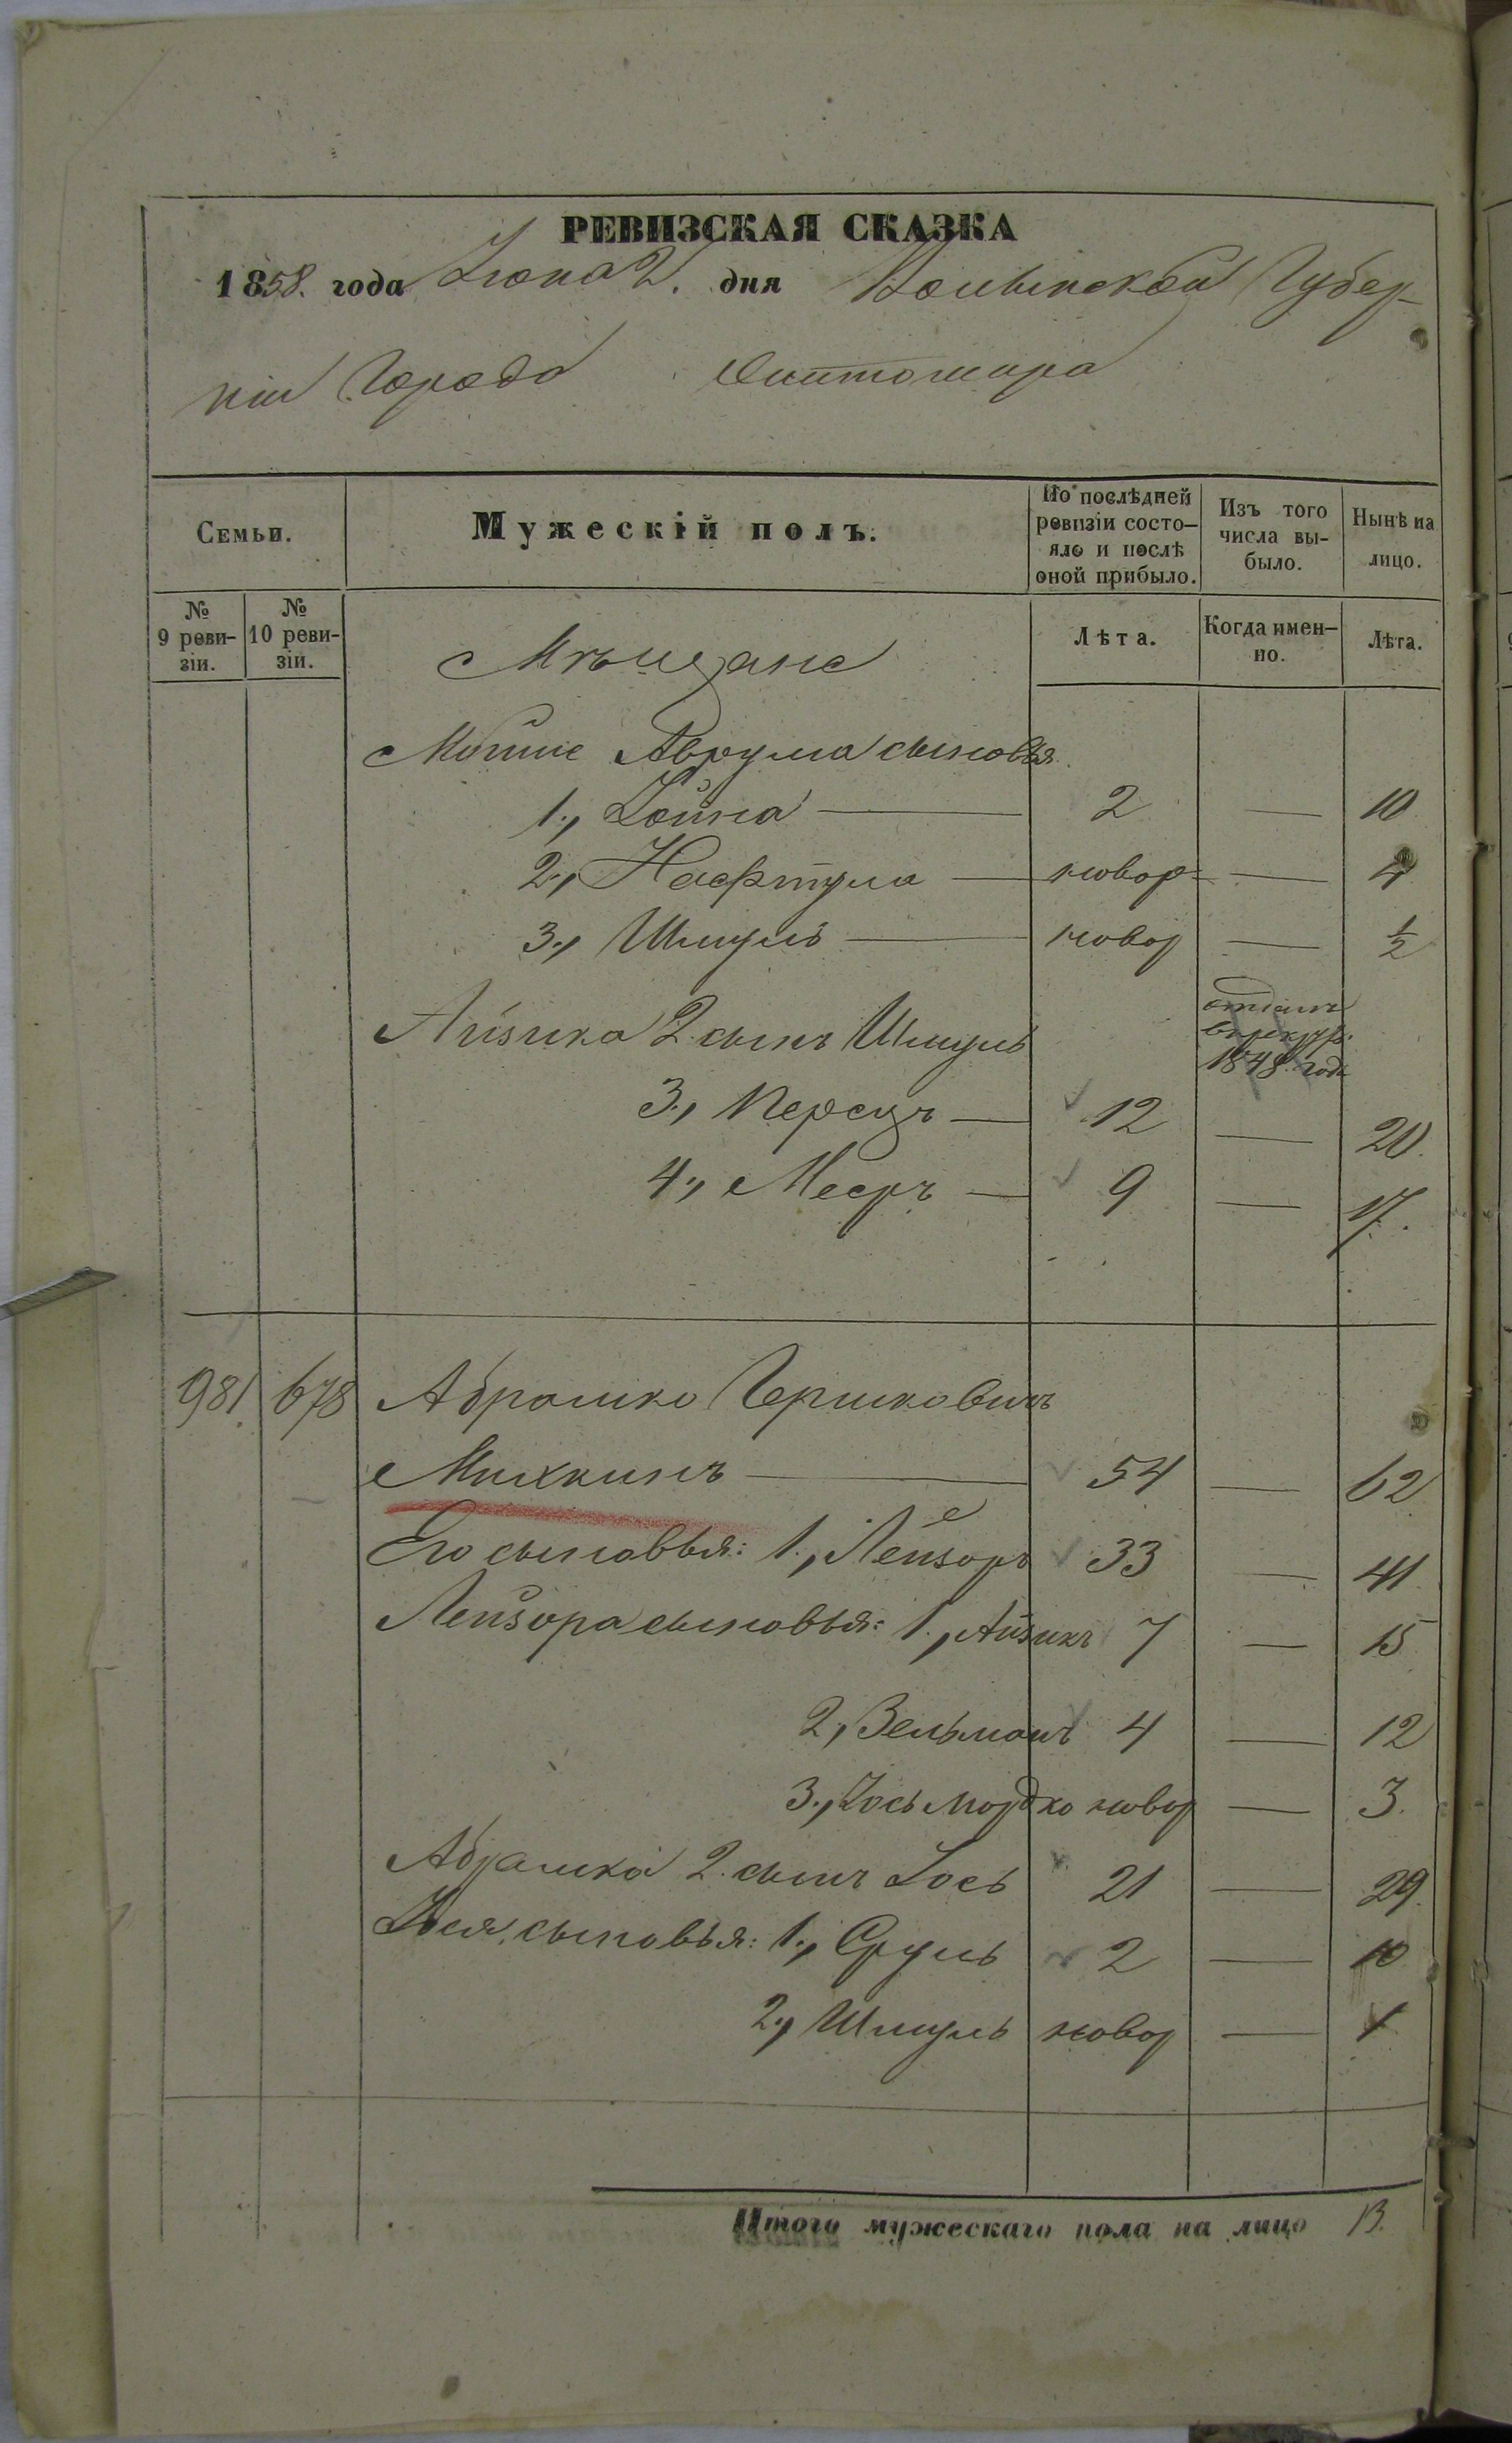 РЕВИЗСКАЯ СКАЗКА
1858. года Іюня 2. дня Волынской Губер-
ніи Города Житомира
Семьи.
Мужескій полъ.
По послѣдней ревизіи состо-яло и послѣ оной прибыло.
Изъ того числа вы-было.
Нынѣ на лицо.
№ 9 реви-зіи.
№ 10 реви-зіи.
Лѣта.
Когда имен-но.
Лѣта.
Мѣщане
Мошка Аврума сыновья
1., Іойна — 2 — 10
2., Нафтула — новор — 4
3., Шмуль — новор — ½
Айзика 2 сынъ Шмуль отданъ в рекруты 1848 года
3., Перецъ — 12 — 20.
4., Мееръ — 9 — 17.
981. 678 Абрамко Гершковичъ
Милкинъ — 54 — 62
Его сыновья: 1., Лейзоръ 33 — 41
Лейзора сыновья: 1., Айзикъ 7 — 15
2, Зельманъ 4 — 12
3., Іось Мордко новор — 3.
Абрамка 2. сынъ Іось 21 — 29.
Іося сыновья: 1., Сруль 2 — 10
2., Шмуль новор — 1
Итого мужескаго пола на лицо 13.